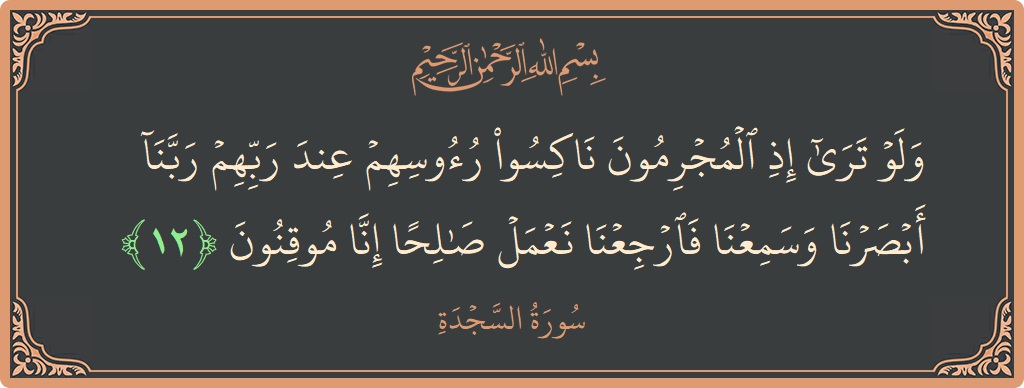 بِسْمِ اللهِ الرَّحْمَٰنِ الرَّحِيمِ
وَلَوْ تَرَىٰٓ إِذِ ٱلْمُجْرِمُونَ نَاكِسُوا۟ رُءُوسِهِمْ عِندَ رَبِّهِمْ رَبَّنَآ
أَبْصَرْنَا وَسَمِعْنَا فَٱرْجِعْنَا نَعْمَلْ صَـٰلِحًا إِنَّا مُوقِنُونَ ﴿١٢﴾
سُورَةُ السَّجْدَةِ